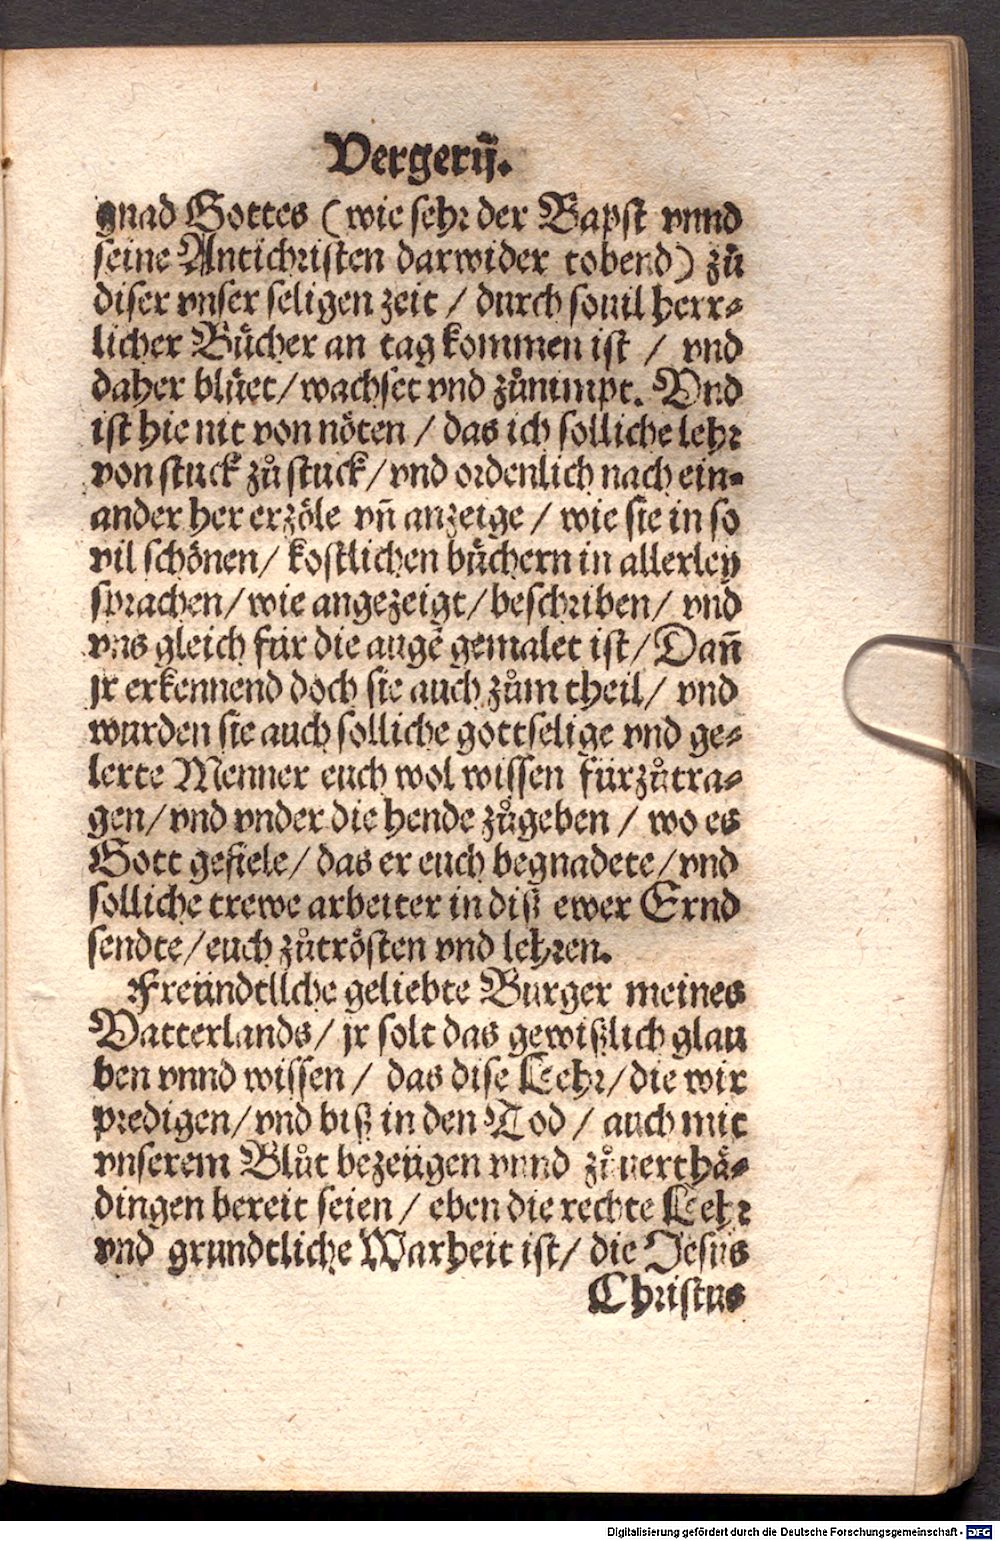 Vergerij.
gnad Gottes (wie sehr der Bapst vnnd
seine Antichristen darwider tobend) zů
diser vnser seligen zeit / durch souil herr⸗
licher Bücher an tag kommen ist / vnd
daher blüet/ wachset vnd zůnimpt. Vnd
ist hie nit von nöten / das ich solliche lehr
von stuck zů stuck/ vnd ordenlich nach ein⸗
ander her erzöle vñ anzeige / wie sie in so
vil schönen/ kostlichen büchern in allerley
sprachen/ wie angezeigt/ beschriben/ vnd
vns gleich für die augẽ gemalet ist/ Dañ
jr erkennend doch sie auch zům theil/ vnd
wurden sie auch solliche gottselige vnd ge⸗
lerte Menner euch wol wissen fürzůtra⸗
gen/ vnd vnder die hende zůgeben / wo es
Gott gefiele/ das er euch begnadete/ vnd
solliche trewe arbeiter in diß ewer Ernd
sendte/ euch zůtrösten vnd lehren.
Freündtllche geliebte Burger meines
Vatterlands/ jr solt das gewißlich glau
ben vnnd wissen / das dise Lehr/ die wir
predigen/ vnd biß in den Tod / auch mit
vnserem Blůt bezeügen vnnd zůuerthä⸗
dingen bereit seien / eben die rechte Lehr
vnd grundtliche Warheit ist/ die Jesus
Christus
Digitalisierung gefördert durch die Deutsche Forschungsgemeinschaft - DFG